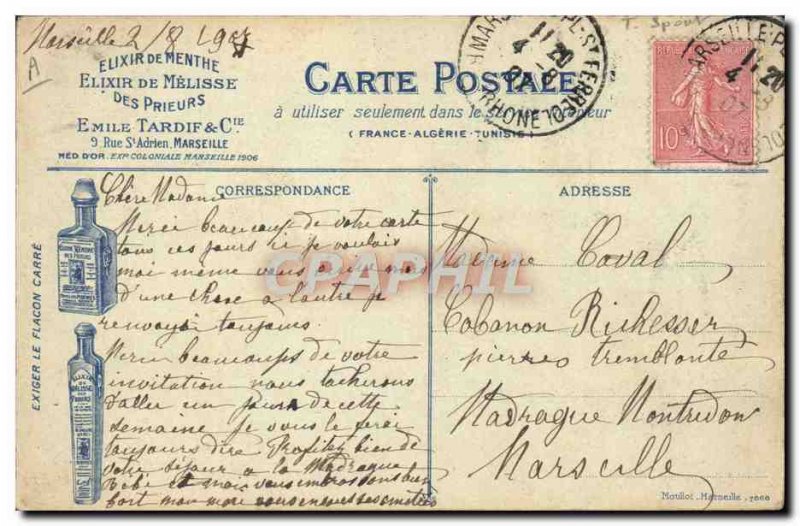 Marseille 2/8 1907
A
T. Spour
ELIXIR DE MENTHE
ELIXIR DE MÉLISSE
DES PRIEURS
EMILE TARDIF & CIE
9, Rue St Adrien, MARSEILLE
MÉD. D'OR. EXP. COLONIALE MARSEILLE 1906
CARTE POSTALE
à utiliser seulement dans le Service intérieur
(FRANCE-ALGÉRIE-TUNISIE)
11 20
4
10
EXIGER LE FLACON CARRÉ
CORRESPONDANCE
Chère Madame
Merci beaucoup de votre carte
tous ces jours ci je voulais
moi même vous
d'une chose à l'autre je
renvoyai toujours
Merci beaucoups de votre
invitation nous tacherons
d'aller un jour de cette
semaine je vous le ferai
toujours dire Profitez bien de
votre séjour a la Madrague
Bebe et moi vous embrassons bien
fort mon mari
ADRESSE
Madame Coval
Cabanon Richesser
pierres tremblante
Madrague Montredon
Marseille
CPAPHIL
Moullot - Marseille